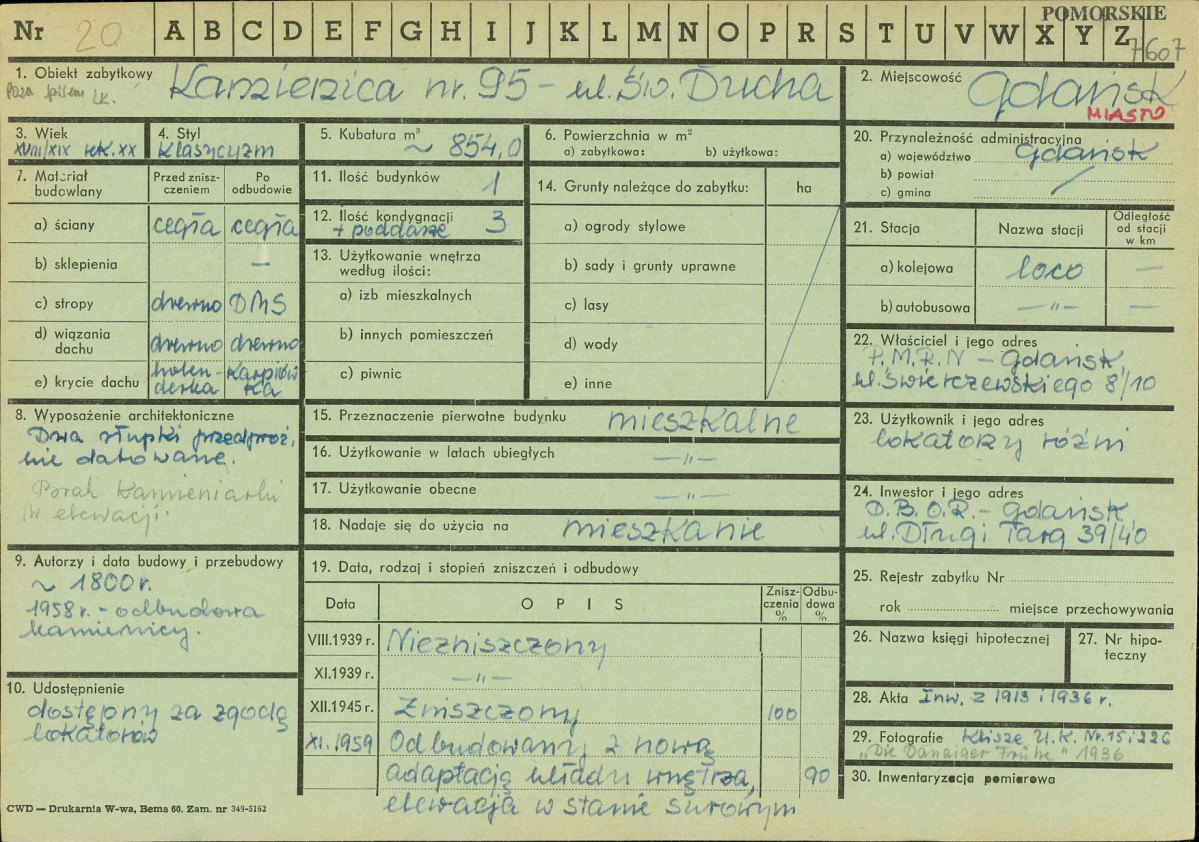 POMORSKIE
Nr 20 A B C D E F G H I J K L M N O P R S T U V W X Y Z
7607
1. Obiekt zabytkowy Kamienica nr. 95 - ul. Św. Ducha
poza spisem
2. Miejscowość Gdańsk
MIASTO
3. Wiek
XVIII/XIX wk. XX
4. Styl
klasycyzm
5. Kubatura m³ ~ 854,0
6. Powierzchnia w m²
a) zabytkowa: b) użytkowa:
7. Materiał budowlany
Przed zniszczeniem
Po odbudowie
a) ściany cegła cegła
b) sklepienia —
c) stropy drewno DMS
d) wiązania dachu drewno drewno
e) krycie dachu holenderka karpiówka
8. Wyposażenie architektoniczne
Dwa słupki przedproż,
nie datowane.
Portal Kamieniarki
w elewacji.
9. Autorzy i data budowy i przebudowy
~ 1800 r.
1958 r. - odbudowa
kamienicy.
10. Udostępnienie
dostępny za zgodą
lokatorów
11. Ilość budynków 1
12. Ilość kondygnacji 3
+ poddasze
13. Użytkowanie wnętrza
według ilości:
a) izb mieszkalnych
b) innych pomieszczeń
c) piwnic
14. Grunty należące do zabytku: ha
a) ogrody stylowe
b) sady i grunty uprawne
c) lasy
d) wody
e) inne
15. Przeznaczenie pierwotne budynku mieszkalne
16. Użytkowanie w latach ubiegłych —„—
17. Użytkowanie obecne —„—
18. Nadaje się do użycia na mieszkanie
19. Data, rodzaj i stopień zniszczeń i odbudowy
Data OPIS Zniszczenia % Odbudowa %
VIII.1939 r. Niezniszczony
XI.1939 r. —„—
XII.1945 r. Zniszczony 100
XI.1959 Odbudowany z nową
adaptacją układu wnętrza, 90
elewacja w stanie surowym
20. Przynależność administracyjna
a) województwo Gdańsk
b) powiat
c) gmina
21. Stacja Nazwa stacji Odległość od stacji w km
a) kolejowa loco —
b) autobusowa —„— —
22. Właściciel i jego adres
P.M.R.N - Gdańsk,
ul. Świerczewskiego 8/10
23. Użytkownik i jego adres
lokatorzy różni
24. Inwestor i jego adres
D.B.O.R. - Gdańsk,
ul. Długi Targ 39/40
25. Rejestr zabytku Nr
rok miejsce przechowywania
26. Nazwa księgi hipotecznej
27. Nr hipoteczny
28. Akta Inw. z 1913 i 1936 r.
29. Fotografie Klisze U.K. Nr. 15 i 226
„Die Danziger 1936
30. Inwentaryzacja pomiarowa
CWD — Drukarnia W-wa, Bema 60. Zam. nr 349-5162